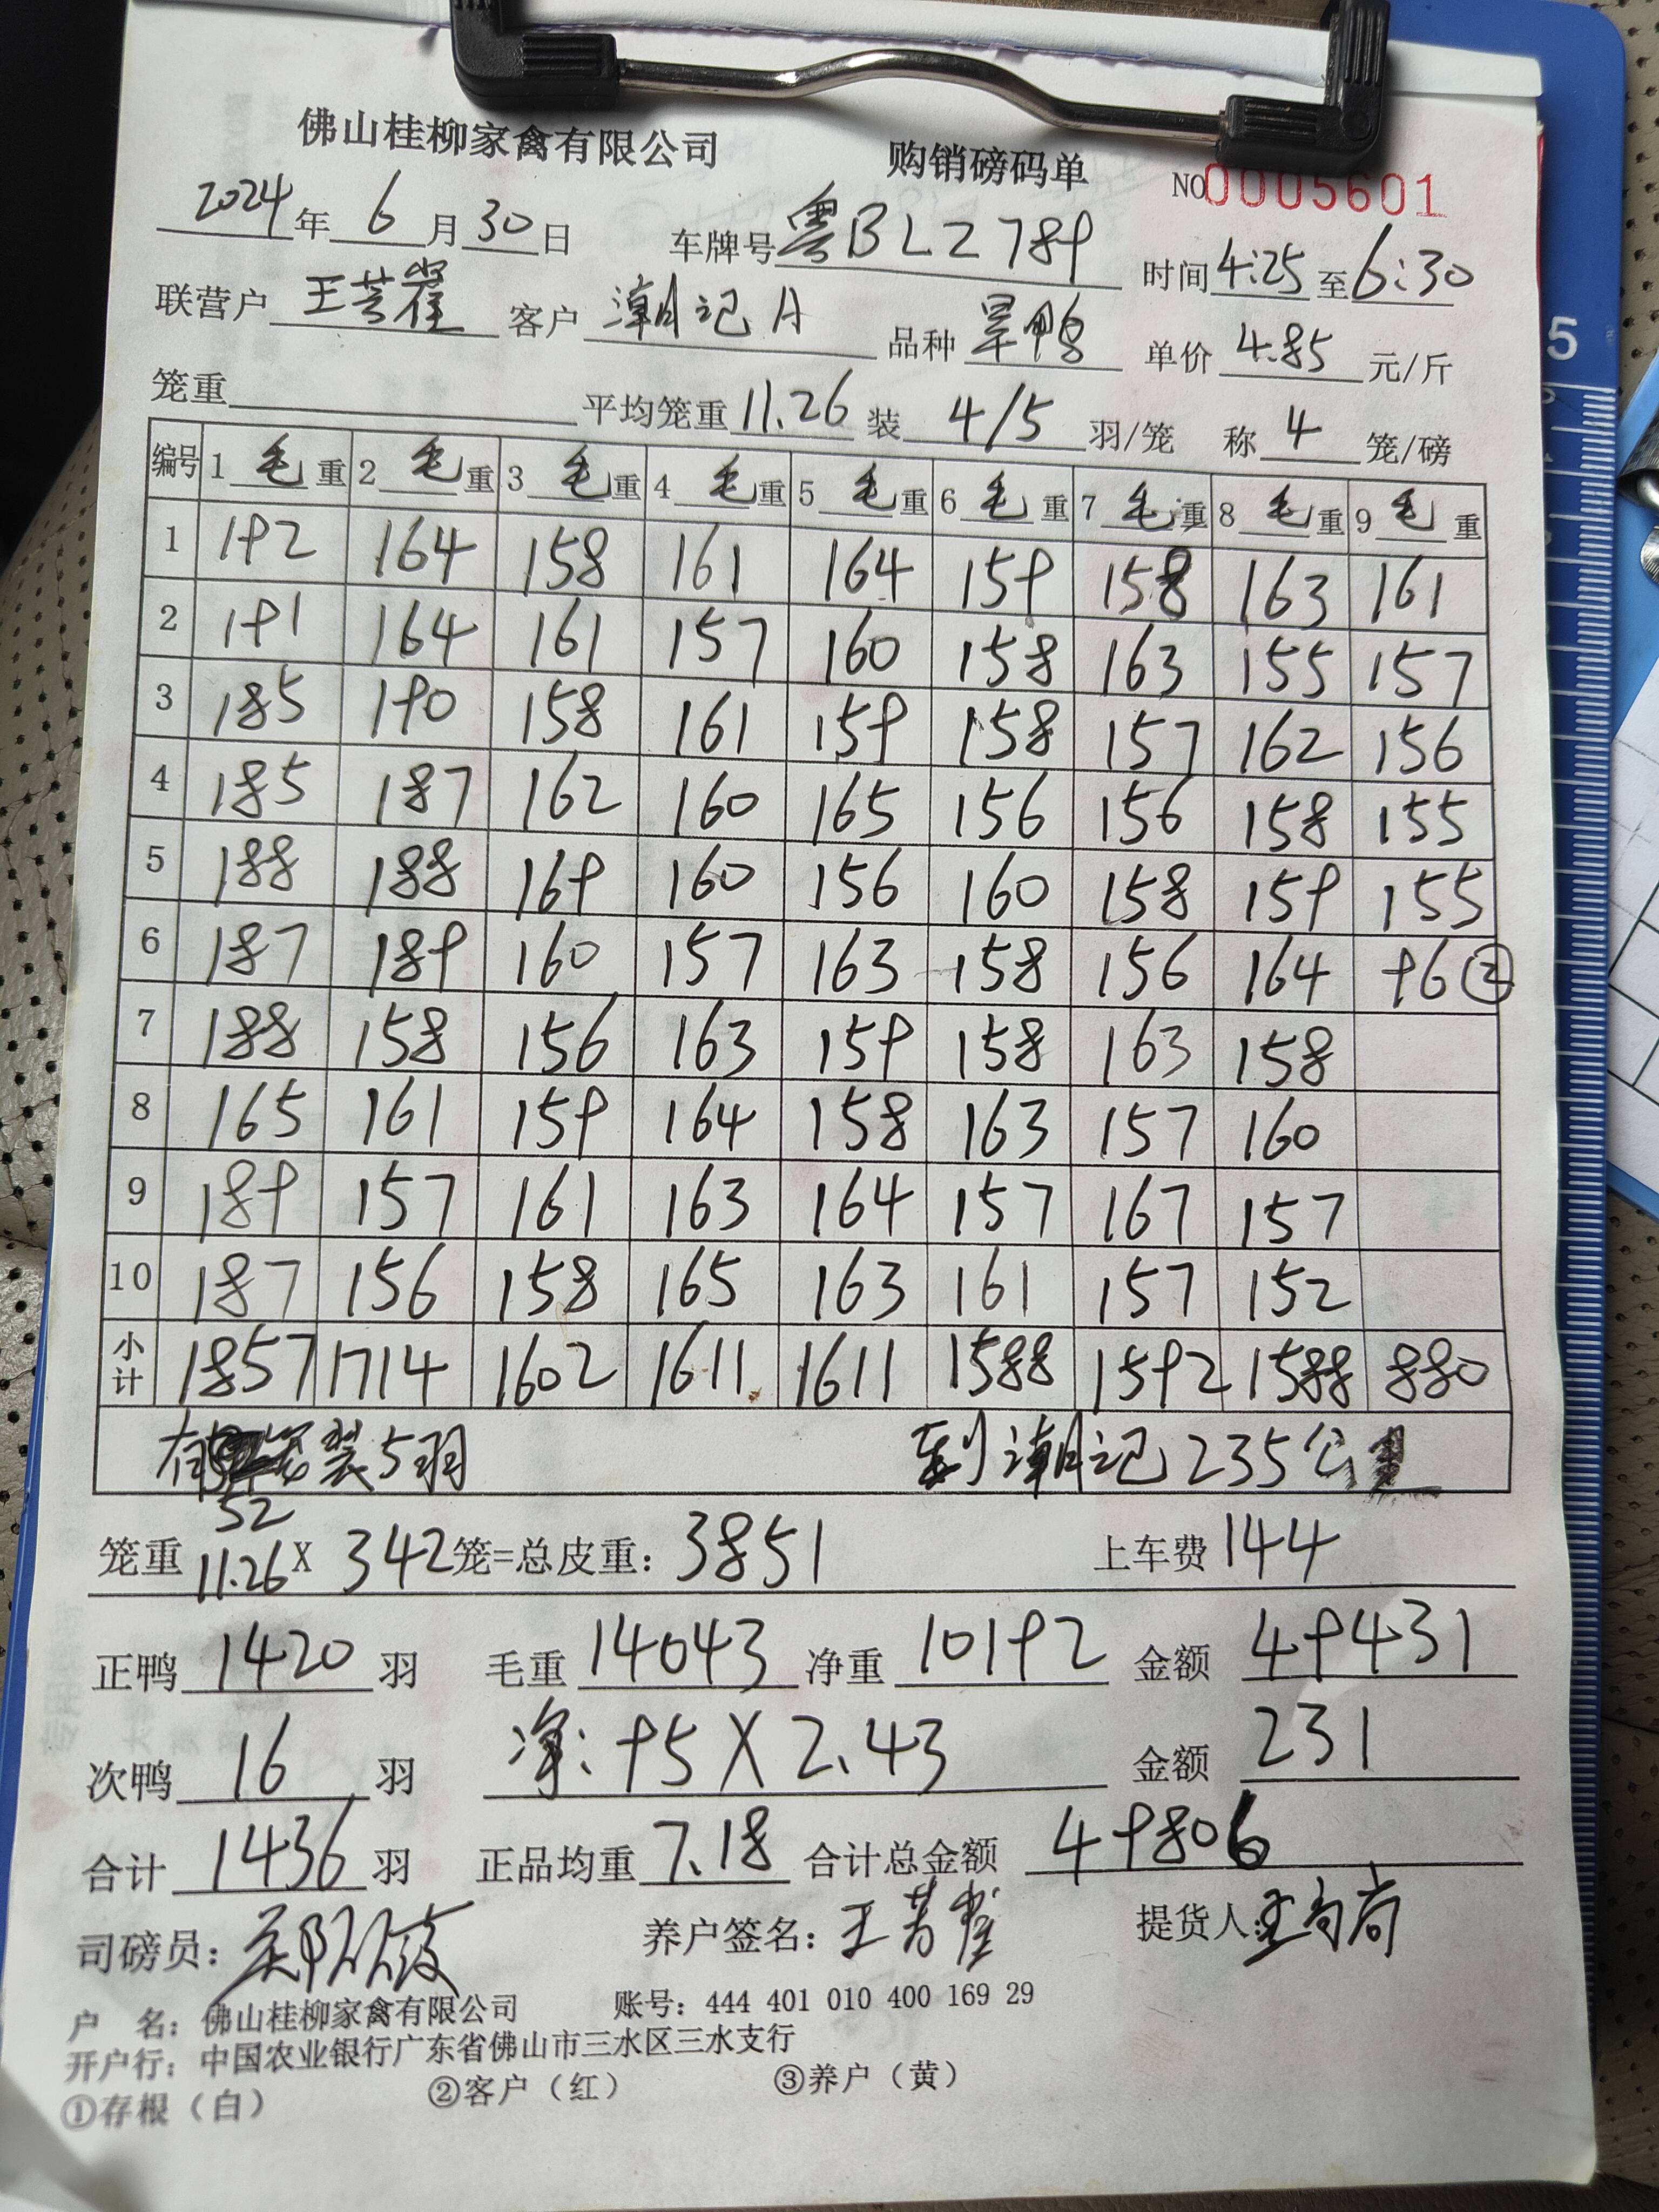 佛山桂柳家禽有限公司 购销磅码单 NO 0005601
2024年6月30日 车牌号粤BLZ789 时间4:25至6:30
联营户 王芳 客户 潮记A 品种 旱鸭 单价 4.85 元/斤
笼重 平均笼重 11.26 装 4/5 羽/笼 称 4 笼/磅
编号 1 毛重 2 毛重 3 毛重 4 毛重 5 毛重 6 毛重 7 毛重 8 毛重 9 毛重
1 192 164 158 161 164 159 158 163 161
2 191 164 161 157 160 158 163 155 157
3 185 190 158 161 159 158 157 162 156
4 185 187 162 160 165 156 156 158 155
5 188 188 169 160 156 160 158 159 155
6 187 189 160 157 163 158 156 164 96②
7 188 158 156 163 159 158 163 158
8 165 161 159 164 158 163 157 160
9 189 157 161 163 164 157 167 157
10 187 156 158 165 163 161 157 152
小计 1857 1714 1602 1611 1611 1588 1592 1588 880
有 笼装5羽 到潮记235公里
52
笼重 11.26 X 342 笼=总皮重: 3851 上车费 144
正鸭 1420 羽 毛重 14043 净重 10192 金额 49431
次鸭 16 羽 净: 95 X 2.43 金额 231
合计 1436 羽 正品均重 7.18 合计总金额 49806
司磅员: 养户签名: 王芳 提货人:
户 名: 佛山桂柳家禽有限公司 账号: 444 401 010 400 169 29
开户行: 中国农业银行广东省佛山市三水区三水支行
①存根(白) ②客户(红) ③养户(黄)
5